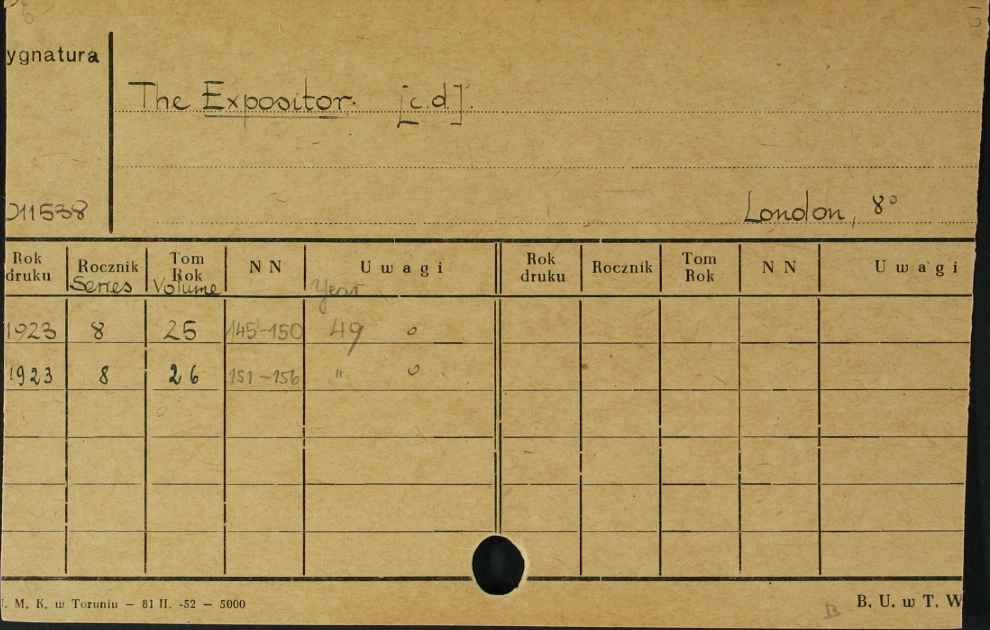 ygnatura
The Expositor. [c.d].
011538
London, 8°
Rok druku Rocznik Tom Rok N N Uwagi Rok druku Rocznik Tom Rok N N Uwagi
Series Volume Year
1923 8 25 145-150 49 o
1923 8 26 151-156 " o
. M. K. w Toruniu — 81 II. -52 — 5000
B. U. w T. W